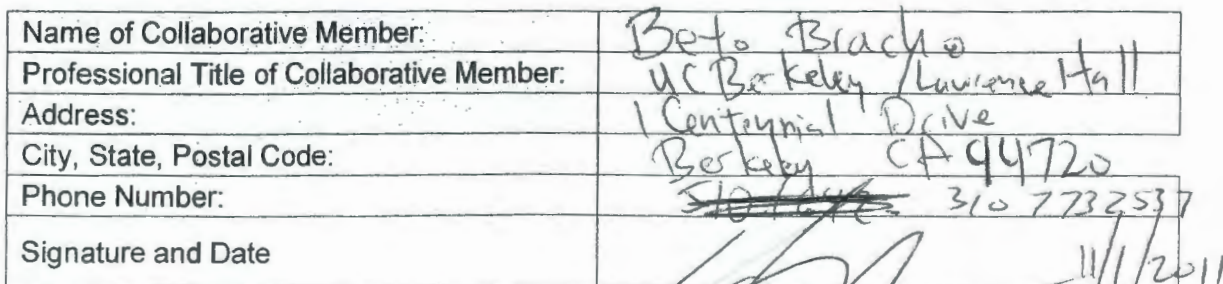 Name of Collaborative Member: Beto Bracho
Professional Title of Collaborative Member: UC Berkeley / Lawrence Hall
Address: 1 Centennial Drive
City, State, Postal Code: Berkeley CA 94720
Phone Number: 310 7732537
Signature and Date 11/1/2011